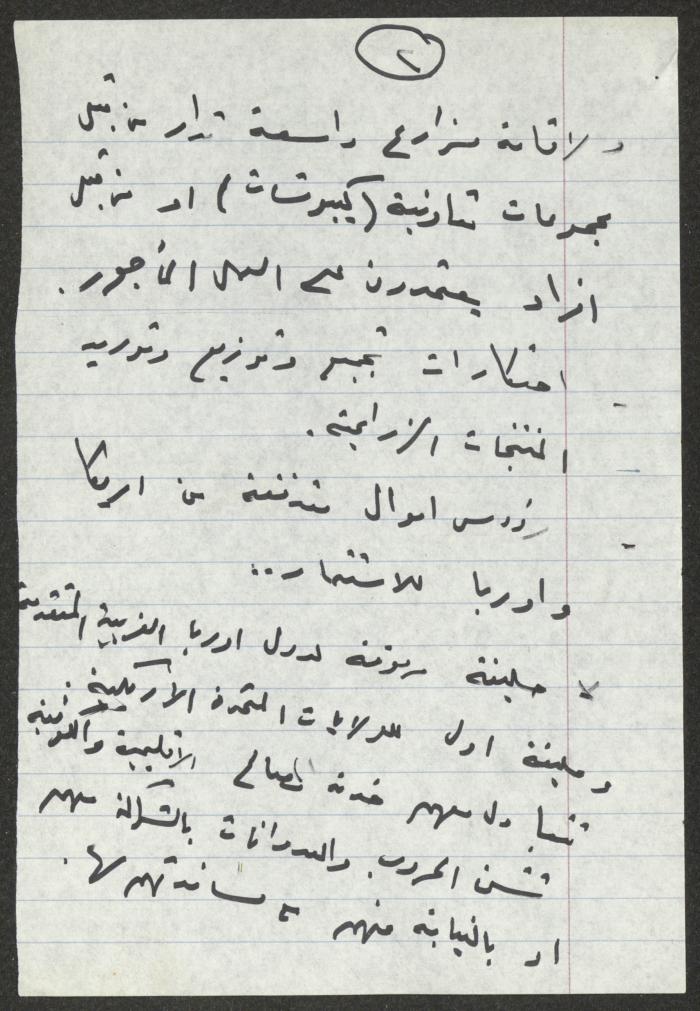 ٢
ولاقامة مزارع واسعة تدار من قبل
مجموعات تعاونية (كيبوتسات) او من قبل
افراد يعتمدون على العمل المأجور.
- احتكارات تجميع وتوزيع وتوريد
المنتجات الزراعية.
- رؤوس اموال متدفقة من امريكا
واوربا للاستثمار..
× حليفة موثوقة لدول اوربا الغربية المتقدمة
وحليفة اولى للولايات المتحدة الأمريكية.
تتبادل معهم خدمة المصالح الاقليمية والكونية
تشن الحروب والعدوانات بالشراكة معهم
او بالنيابة عنهم و مساندتهم لها.